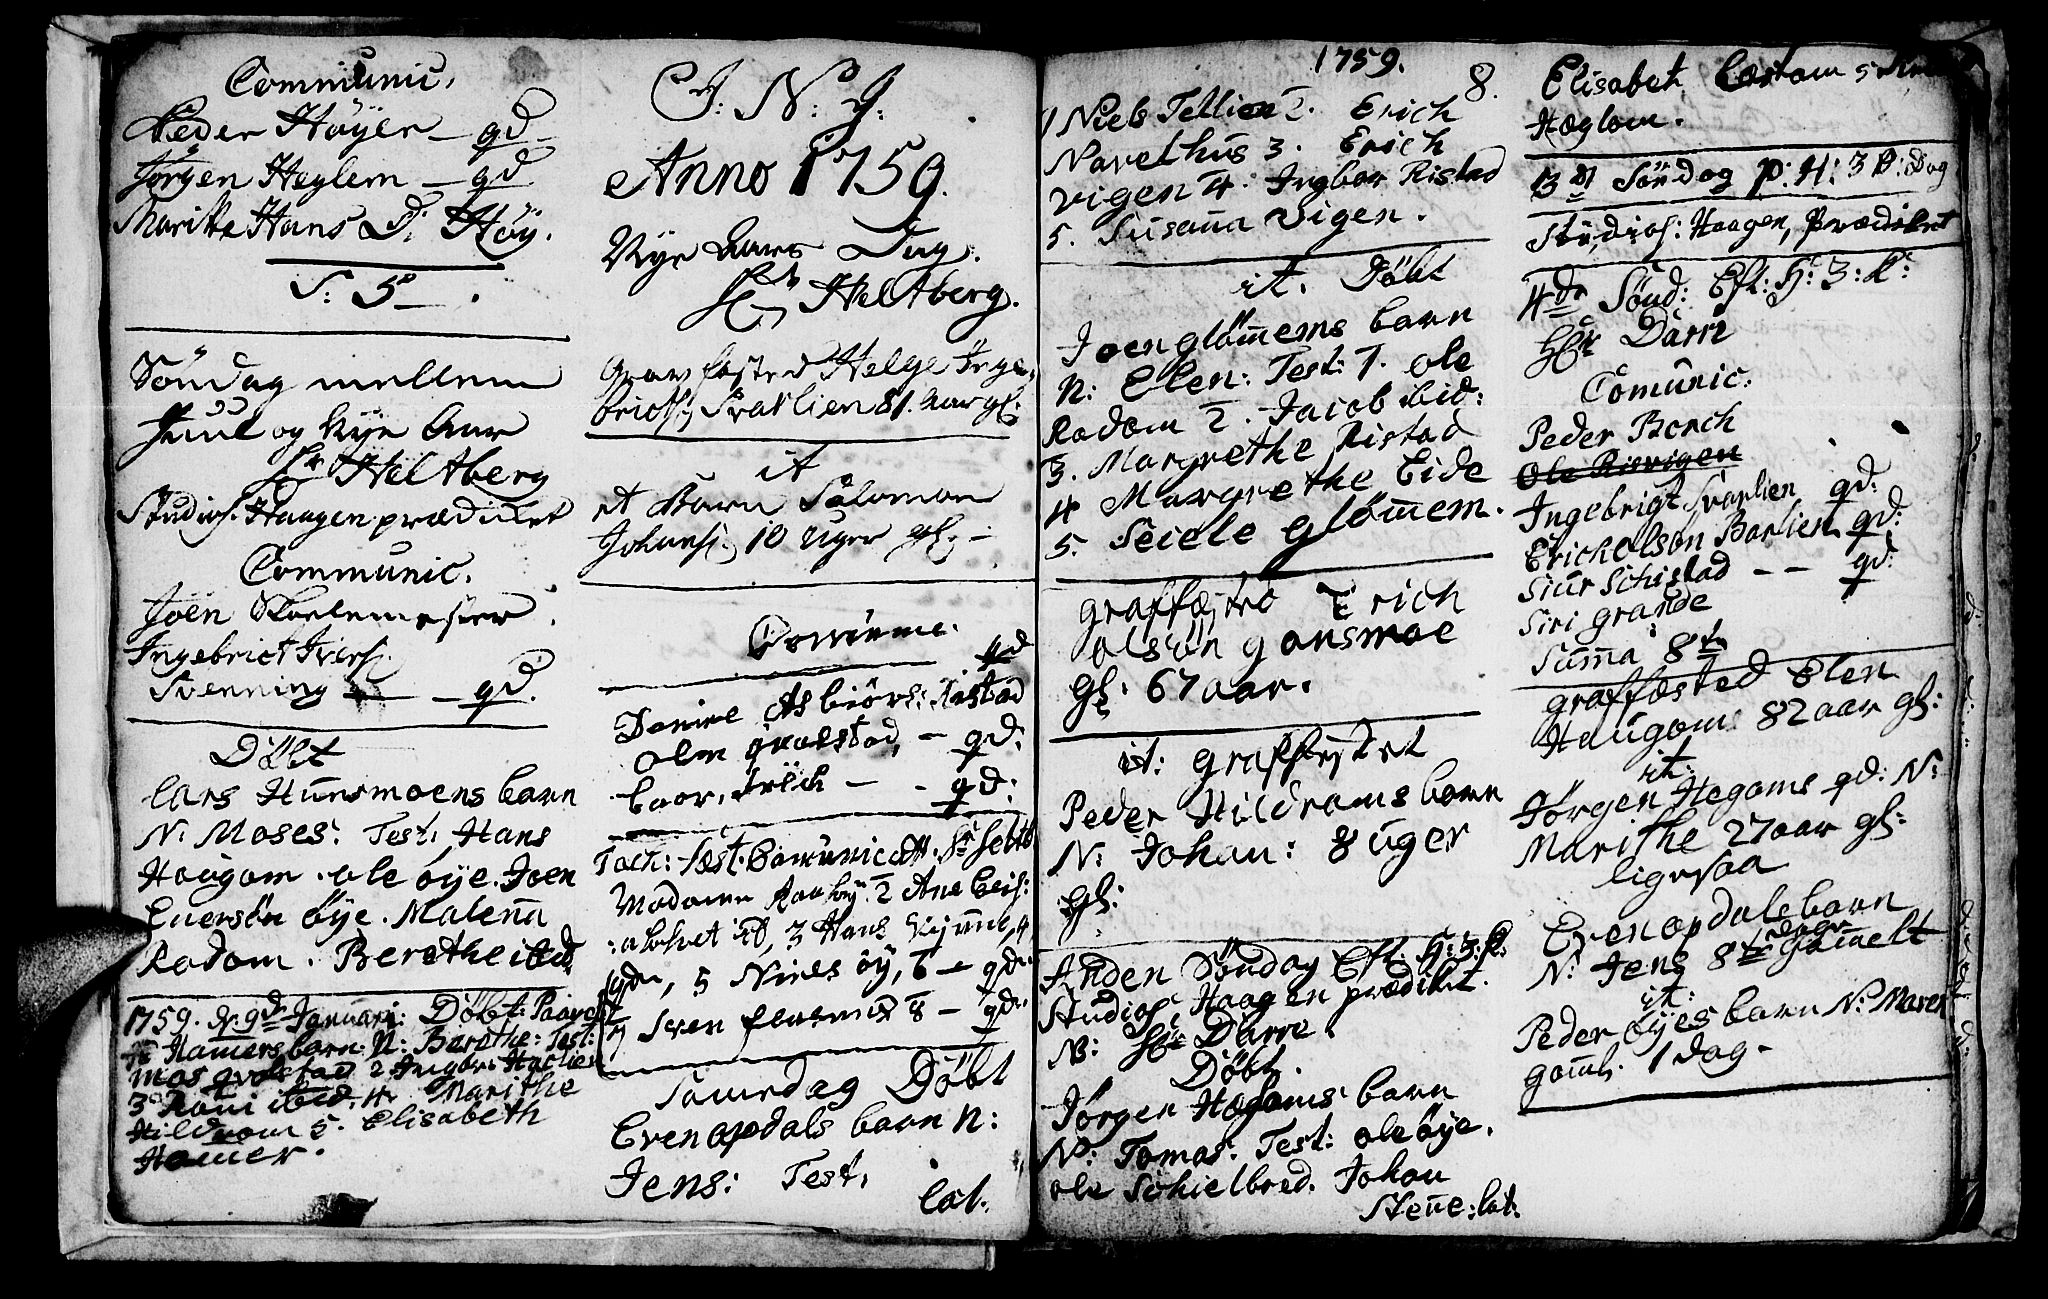 Communic.
Peder Höyer - qd
Jørgen Heglem - qd
Maritte Hans D: Höy.
S: 5
Söndag mellem
Juul og Nye Aar
Hr Heltberg
Studios. Haagen prædicket
Communic.
Joen Skolemester
Ingebrict Ivers.
Svenning - qd.
Döbt
Lars Hunsmoens barn
N: Moses: Test: Hans
Haugom. ole öye. Joen
Eversön öye. Malena
Radom. Berethe ibid
1759. d. 9de Januari: Döbt:
Hamers barn: N: Berethe: Test:
qvalstad 2 Ingbor Harlien
3 ibid. 4. Marithe
Hildrom 5. Elisabeth
Hamer.
I: N: J:
Anno 1759.
Nye Aars Dag.
Hr Heltberg.
Grav fæsted Helge Inge-
brichs. Svarlien 81. aar gl:
it
et Barn Salomon
Johans. 10 uger gl:
Commune.
qd
Asbiörs:
Olm qvalstad, - qd:
- qd:
Test. Communicat. Hr
Madame 2 Ane
ibid, 3 Hans
5 Niels öy, 6 - qd
7 Sven 8 - qd
Döbt
Even opdals barn N:
Jens: Test:
lat:
1759.
8.
1 Niels Tellien 2. Erich
Navelhus 3. Erich
vigen 4. Ingbor Ristad
5. Susana vigen.
it. Döbt
Joen glömems barn
N: Elen: Test: 1. ole
Radom 2. Jacob ibid:
3. Margrethe Ristad
4 Margrethe Eide
5. Seiele glömem.
graffæsted Erich
olsön gansmoe
gl. 67 aar.
it: graffæstet
Peder Hildroms barn
N: Johan: 8 uger
gl:
Anden Söndag Eft. H: 3. K:
Studios. Haagen prædiket.
N: Hr Darre.
Döbt.
Jörgen Hegoms barn
N: Tomas: Test: ole öye.
ole Schielbred. Johan
Stene: lat:
Elisabet 5
Hæglom.
3di Söndag p: H: 3 K: Dag
Studios: Haagen, Prædiket
4de Sönd: Eft: H: 3: K:
Hr Darre
Comunic.
Peder Borch
Ole Risvigen
Ingebrigt Svarlien qd:
Erich Olson Barlien qd:
Siur Schistad - - qd:
Siri grande
Suma 8t
graffæsted Elen
Haugom 82 aar gl:
it:
Jörgen Hegoms qd: N:
Marithe 27 aar gl:
ligesaa
Even opdals barn
N: Jens 8te dage gamelt
it:
Peder öyes barn N: Maren
gaml. 1 dag.